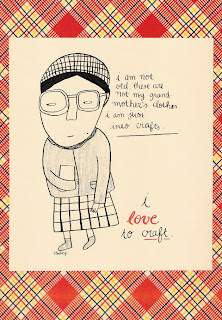 i am not
old, these are
not my grand
mother's clothes.
i am just
into crafts.
i
love
to craft.